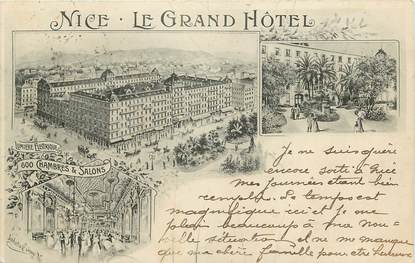 NICE - LE GRAND HÔTEL
LUMIÈRE ÉLECTRIQUE
600 CHAMBRES & SALONS
Je ne suis guère
encore sorti à Nice
mes journées étant bien
remplies. Le temps est
magnifique ici et je me
plais beaucoup à ma nou-
velle situation, il ne me manque
que ma chère famille pour être heureux